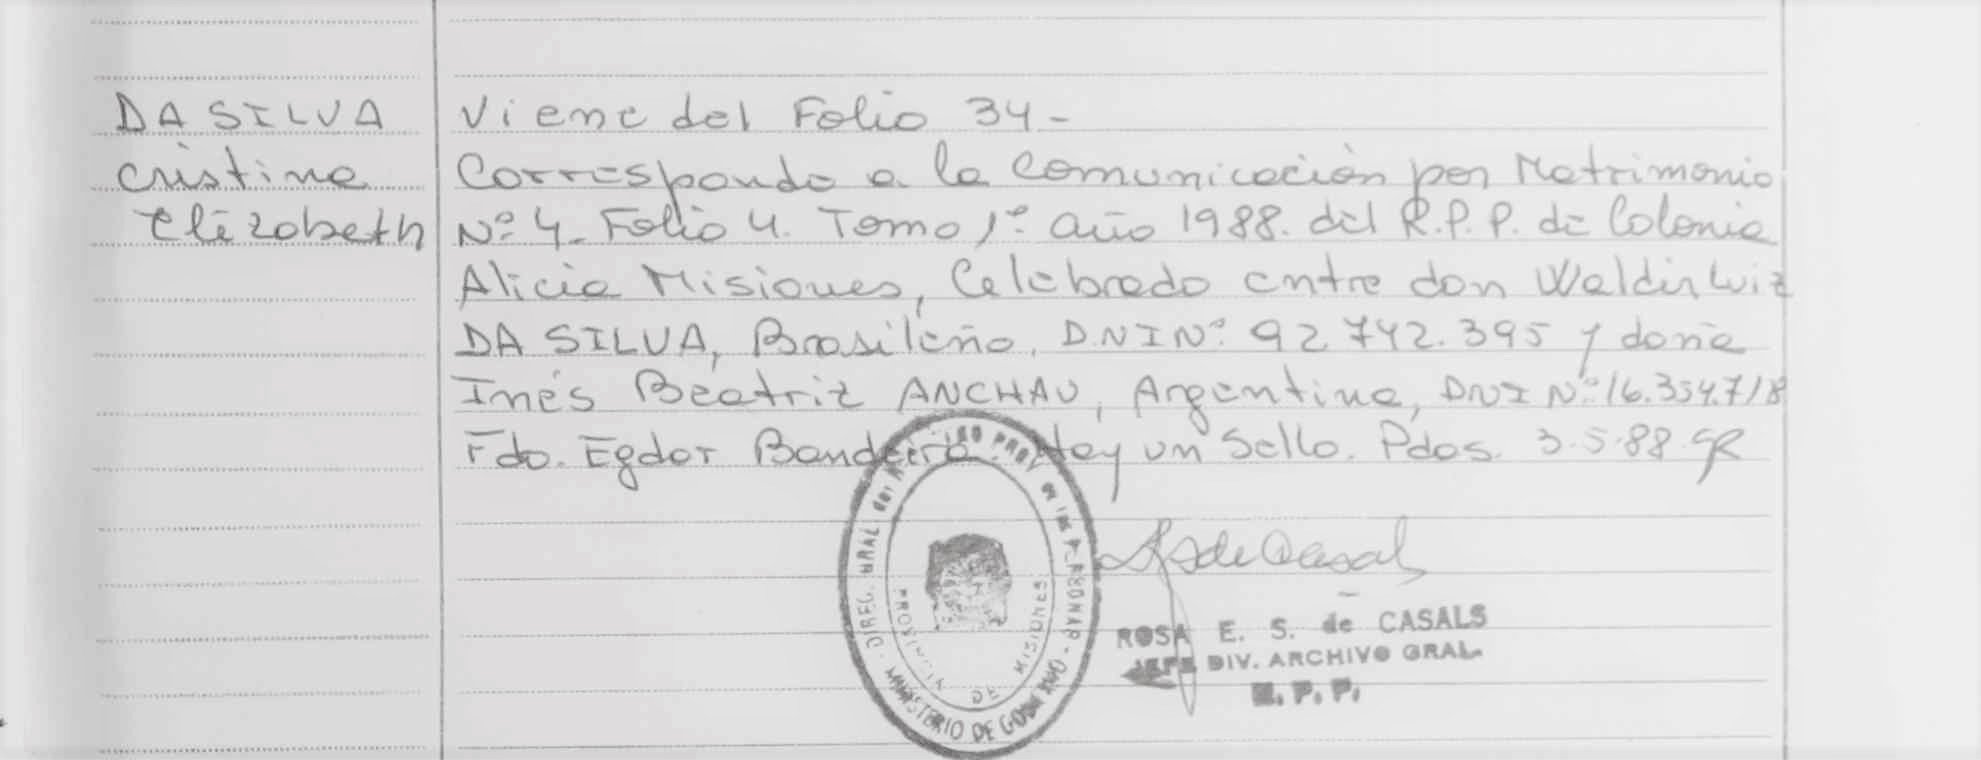 DA SILVA
Cristina
Elizabeth
Viene del Folio 34-
Corresponde a la Comunicación por Matrimonio
Nº 4. Folio 4. Tomo 1º año 1988. del R.P.P. de Colonia
Alicia Misiones, Celebrado entre don Waldir Luiz
DA SILVA, Brasileño, D.N.I Nº 92.742.395 y doña
Inés Beatriz ANCHAU, Argentina, DNI Nº 16.354.718
Fdo. Egdor Bandeira. Hay un Sello. Pdas. 3.5.88
DIREC. GRAL del REG. PROV. de las PERSONAS
MINISTERIO DE GOBIERNO
PROVINCIA DE MISIONES
ROSA E. S. de CASALS
JEFE DIV. ARCHIVO GRAL.
R. P. P.